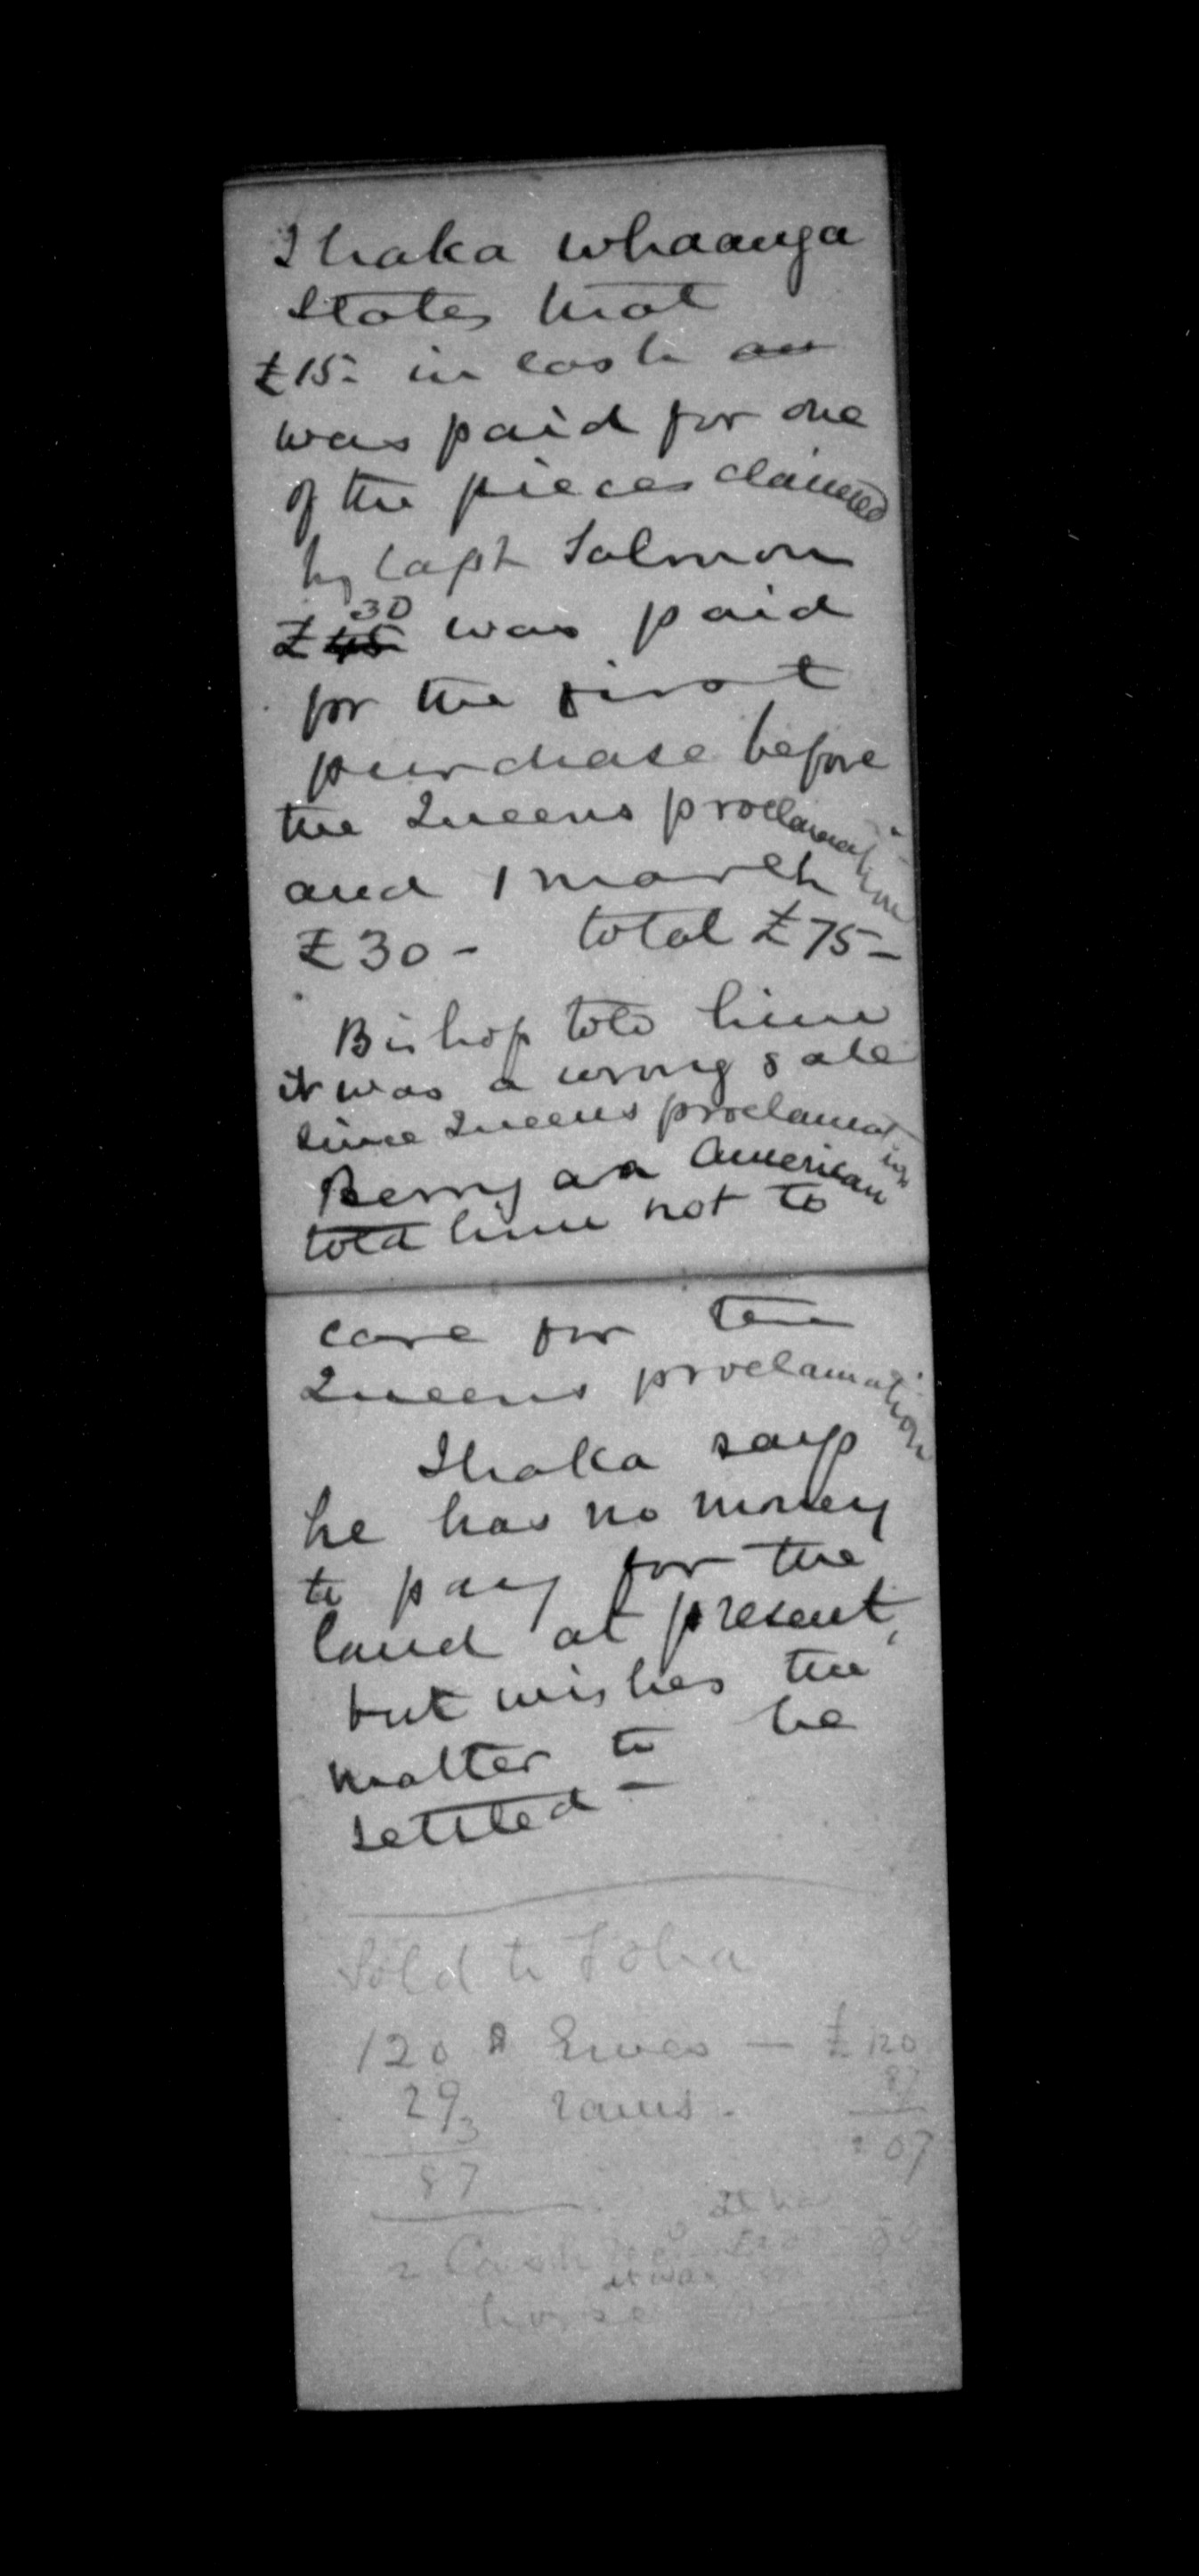 Ihaka Whaanga
States that
£15- in cash an
was paid for one
of the pieces claimed
by Capt Salmon
£45 30 was paid
for the first
purchase before
the Queens proclamation
and 1 march
£30 - total £75-
Bishop told him
it was a wrong sale
since Queens proclamation
Berry an American
told him not to
care for the
Queens proclamation
Ihaka says
he has no money
to pay for the
land at present,
but wishes the
matter to be
settled -
Sold to
120 Ewes - £120
29 rams. 87
3
87 207
Cash
horse